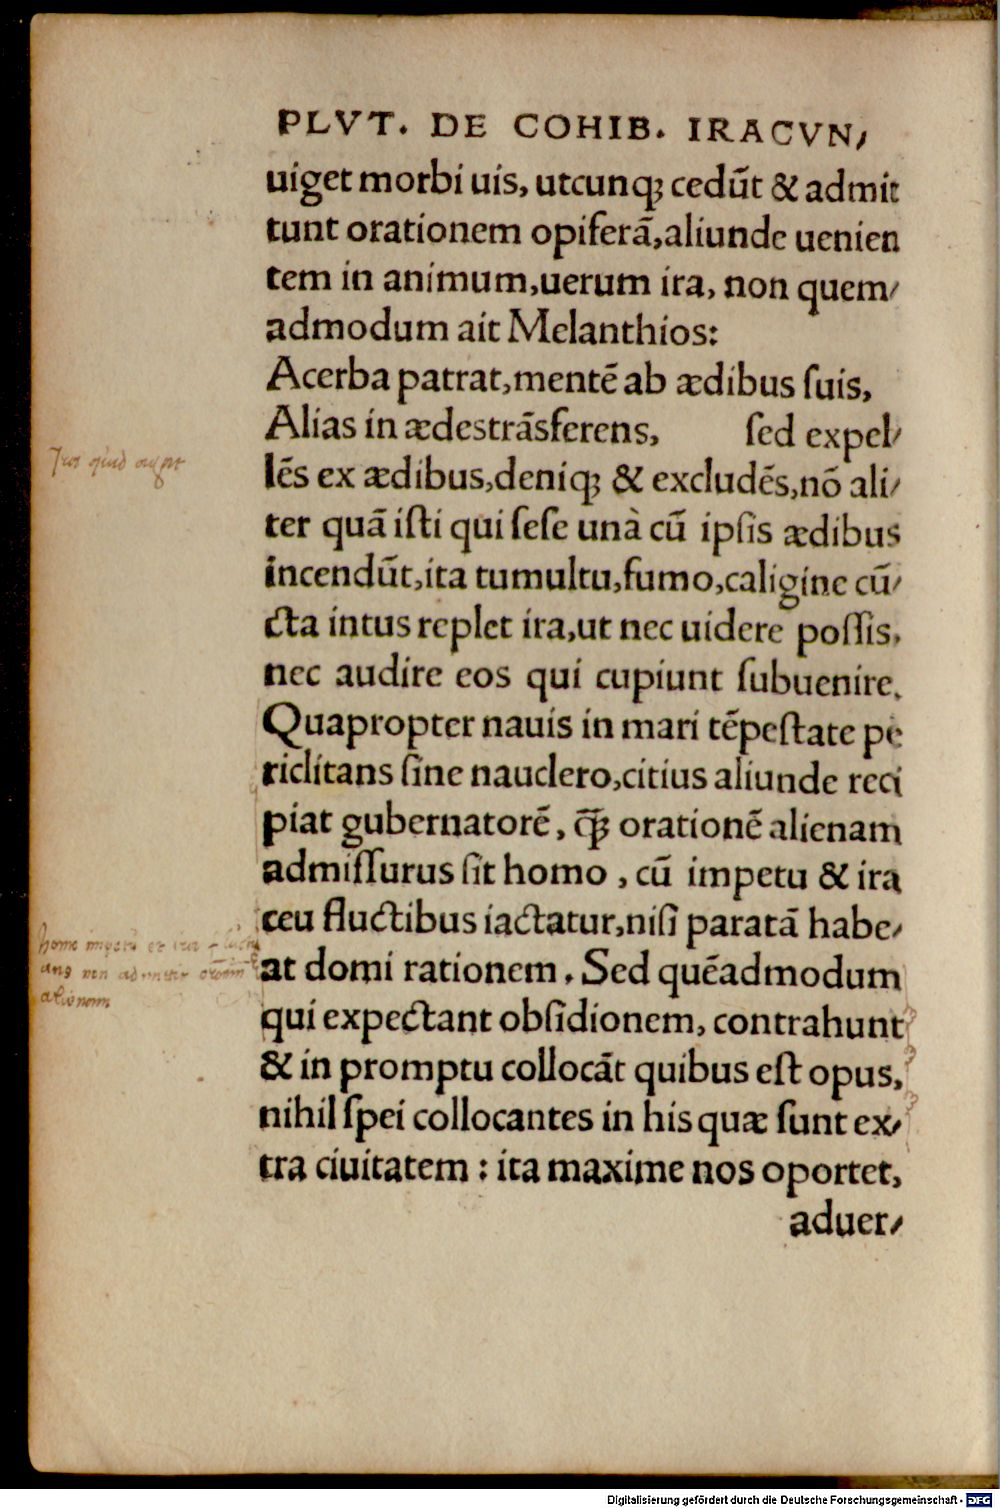 PLVT. DE COHIB. IRACVN/
uiget morbi uis, utcunqꝫ cedūt & admit
tunt orationem opiferā,aliunde uenien
tem in animum,uerum ira, non quem/
admodum ait Melanthios:
Acerba patrat,mentē ab ædibus ſuis,
Alias in ædestrāsferens, ſed expel/
lēs ex ædibus,deniqꝫ & excludēs,nō ali/
ter quā iſti qui ſeſe unà cū ipſis ædibus
incendūt,ita tumultu,fumo,caligine cū/
cta intus replet ira,ut nec uidere poſſis,
nec audire eos qui cupiunt ſubuenire.
Quapropter nauis in mari tēpeſtate pe
riclitans ſine nauclero,citius aliunde reci
piat gubernatorē, q̄ꝫ orationē alienam
admiſſurus ſit homo , cū impetu & ira
ceu fluctibus iactatur,niſi paratā habe/
at domi rationem. Sed quēadmodum
qui expectant obſidionem, contrahunt
& in promptu collocāt quibus eſt opus,
nihil ſpei collocantes in his quæ ſunt ex/
tra ciuitatem : ita maxime nos oportet,
aduer/
Ira quid
homo impetu et ira
non
alienam
Digitalisierung gefördert durch die Deutsche Forschungsgemeinschaft - DFG